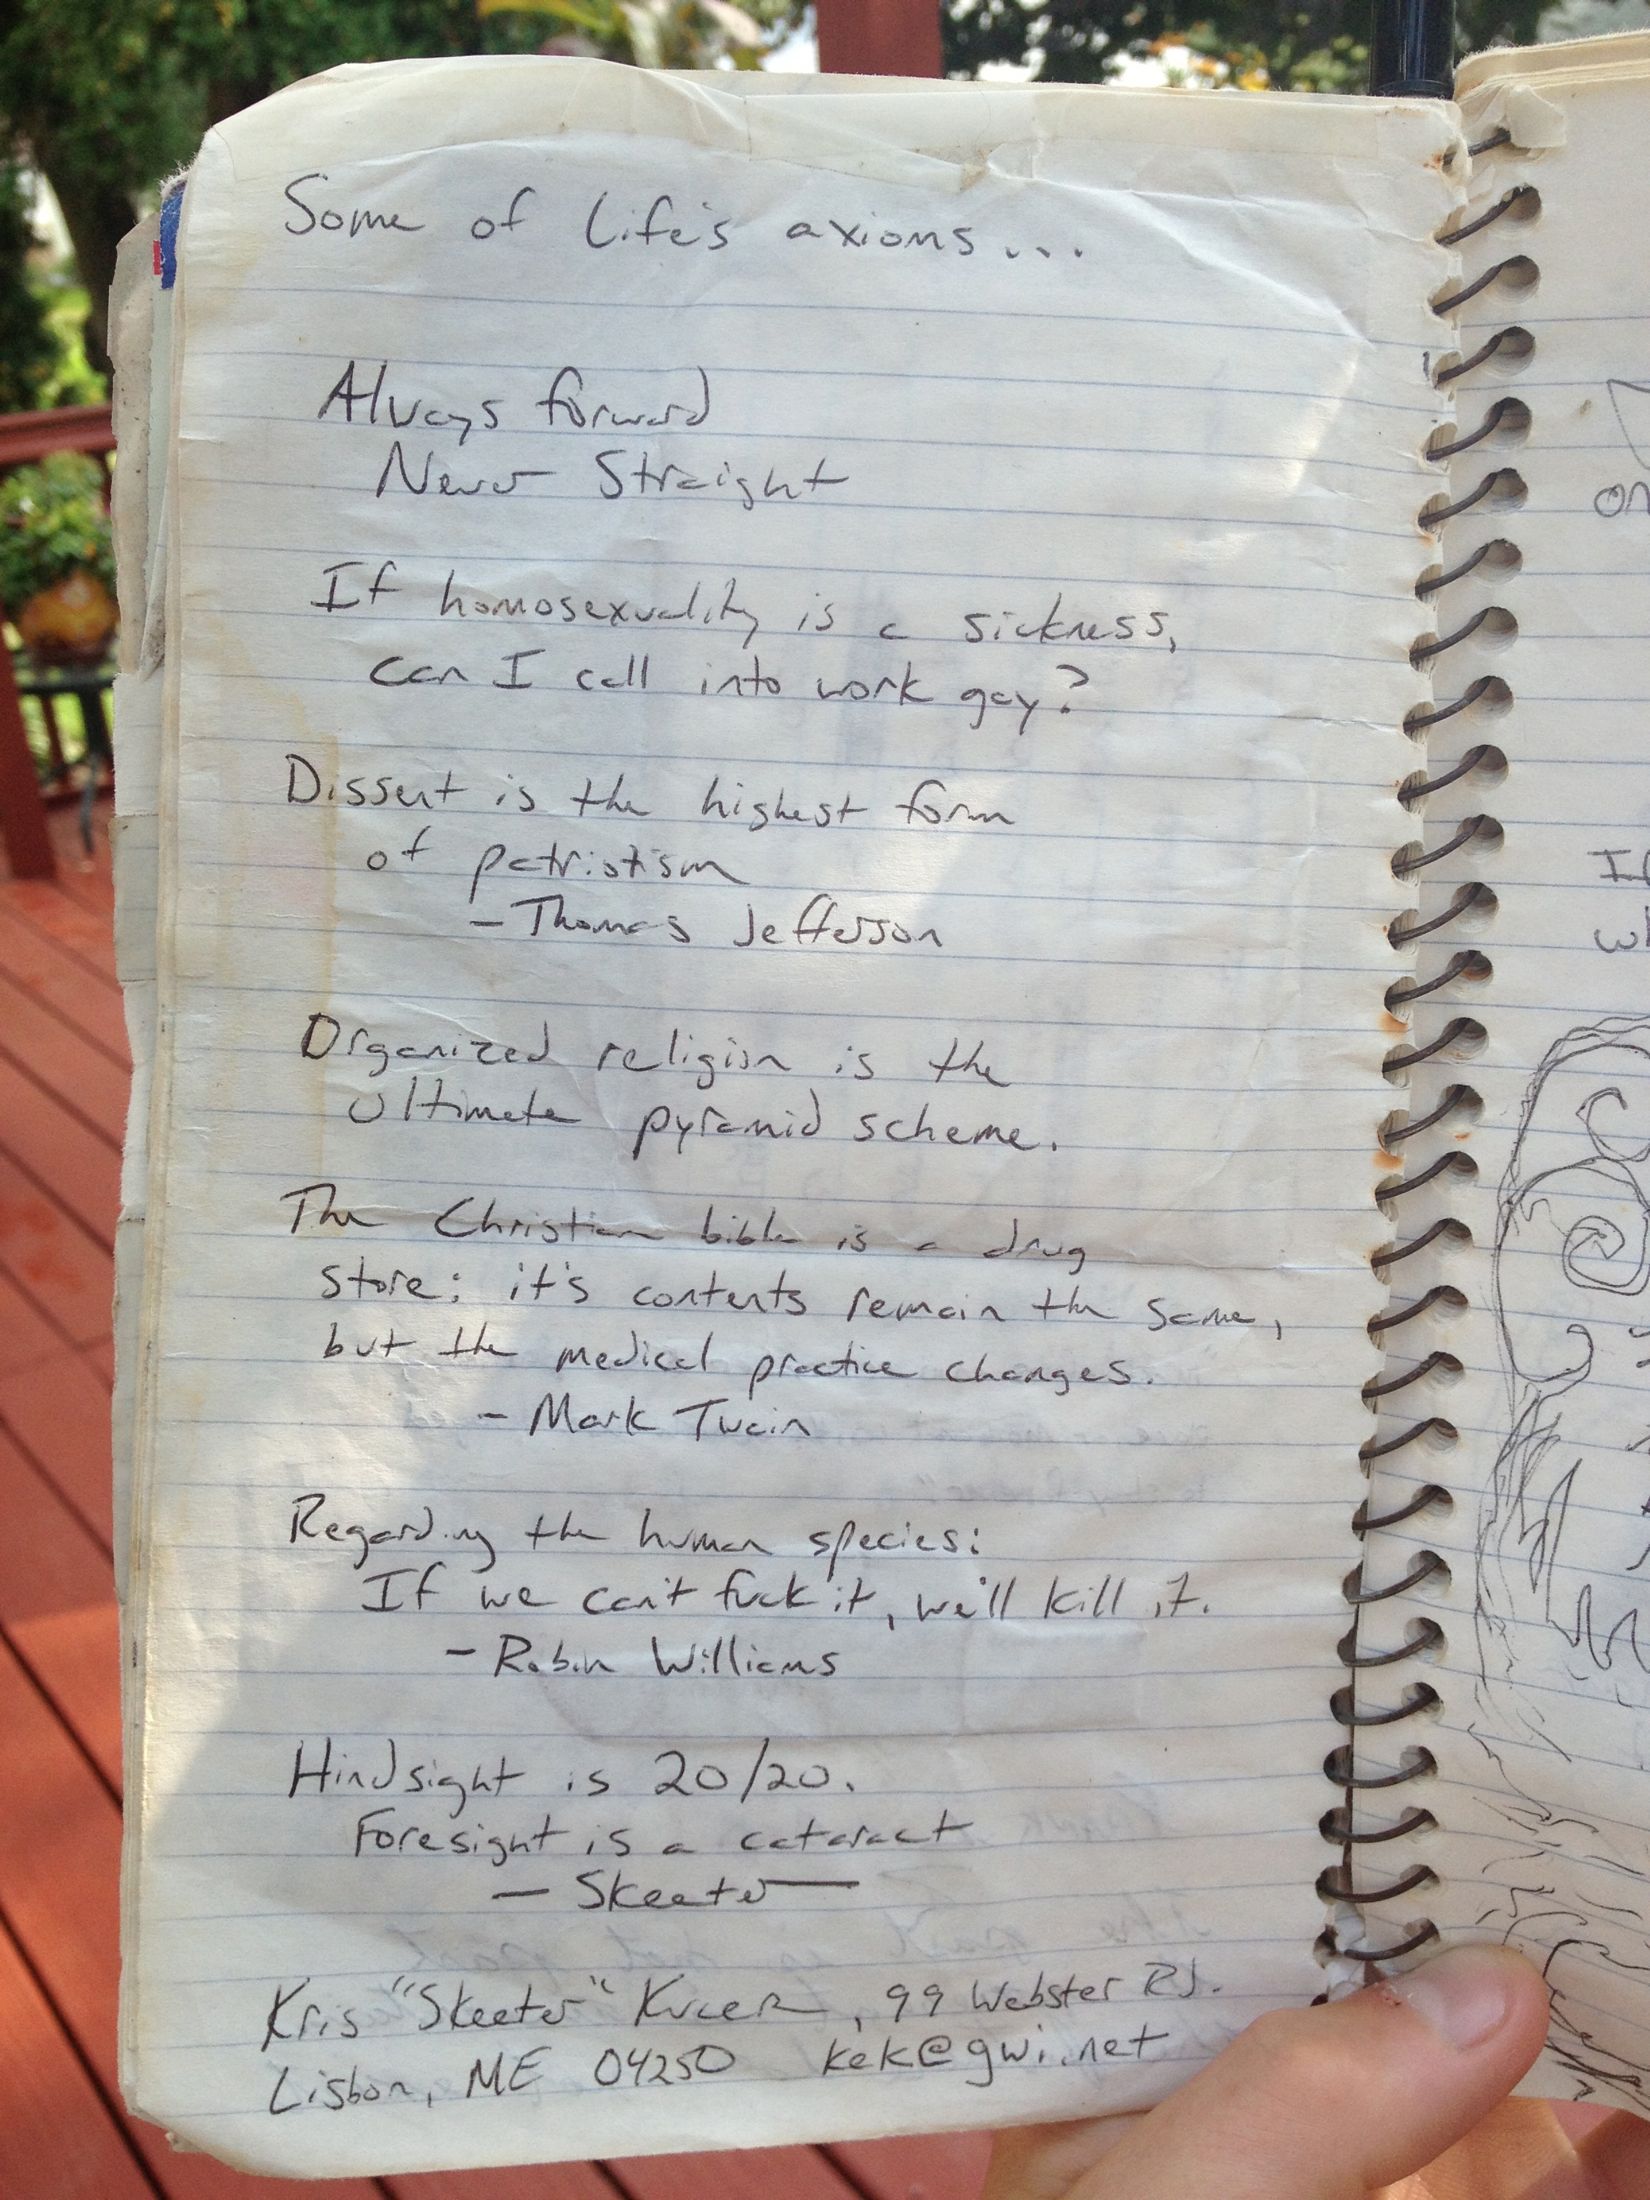 Some of life's axioms...
Always forward
Never Straight
If homosexuality is a sickness,
can I call into work gay?
Dissent is the highest form
of patriotism
- Thomas Jefferson
Organized religion is the
ultimate pyramid scheme.
The Christian bible is a drug
store: it's contents remain the same,
but the medical practice changes.
- Mark Twain
Regarding the human species:
If we can't fuck it, we'll kill it.
- Robin Williams
Hindsight is 20/20.
Foresight is a cataract
- Skeeter
Kris "Skeeter" , 99 Webster Rd.
Lisbon, ME 04250 kek@gwi.net
on
If